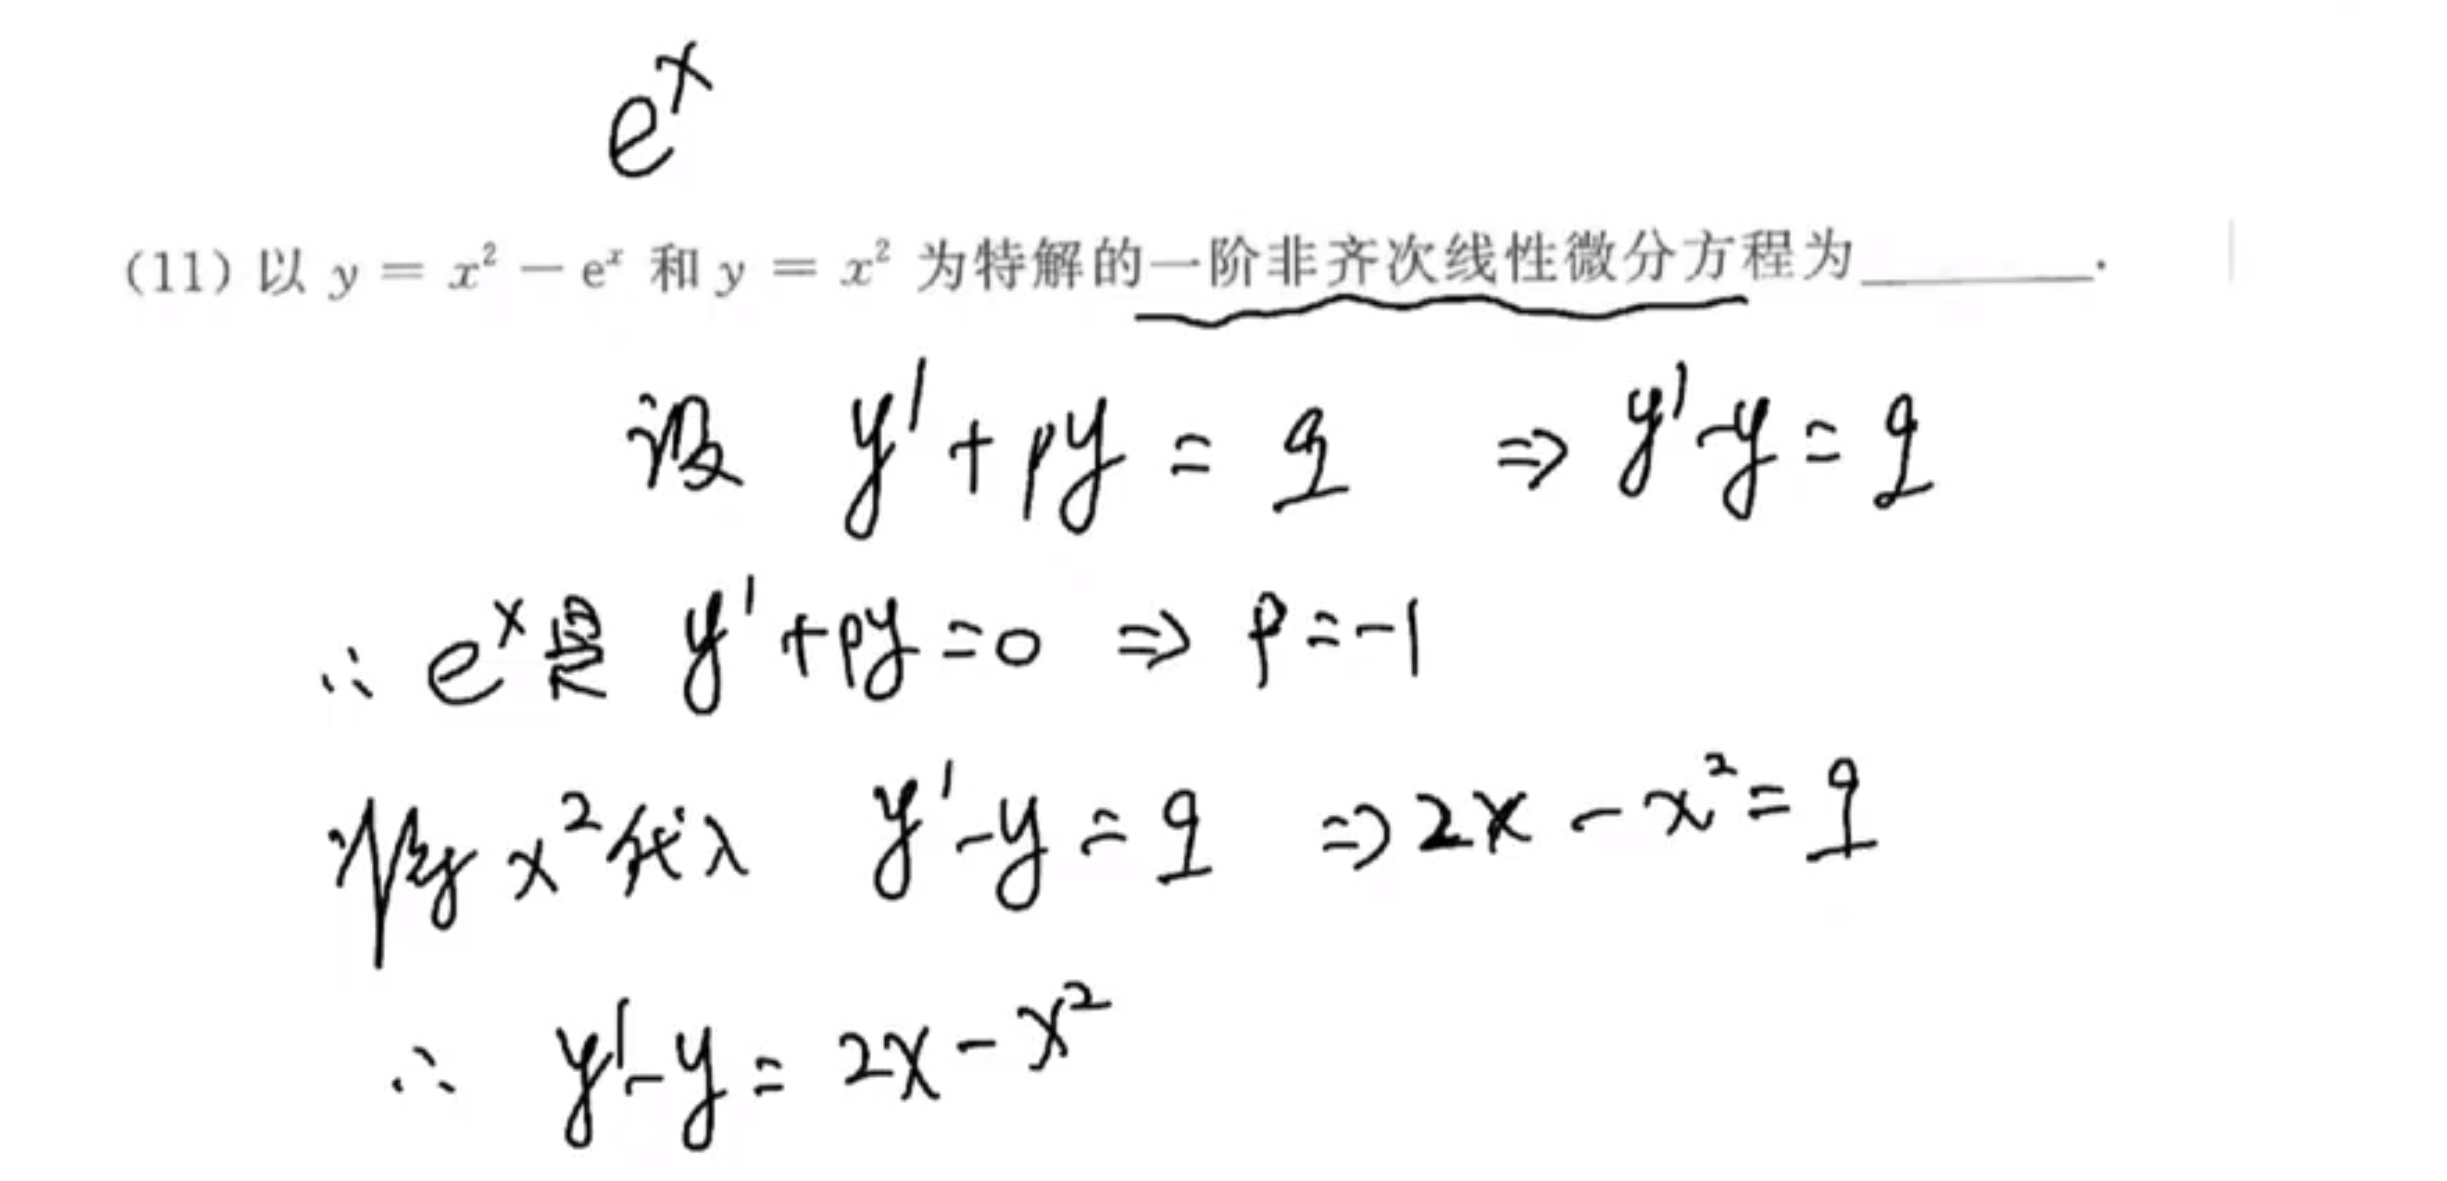 eˣ
(11) 以 y = x² − eˣ 和 y = x² 为特解的一阶非齐次线性微分方程为________.
设 y' + py = q ⇒ y' - y = q
∴ eˣ是 y' + py = 0 ⇒ p = -1
将 x² 代入 y' - y = q ⇒ 2x - x² = q
∴ y' - y = 2x - x²